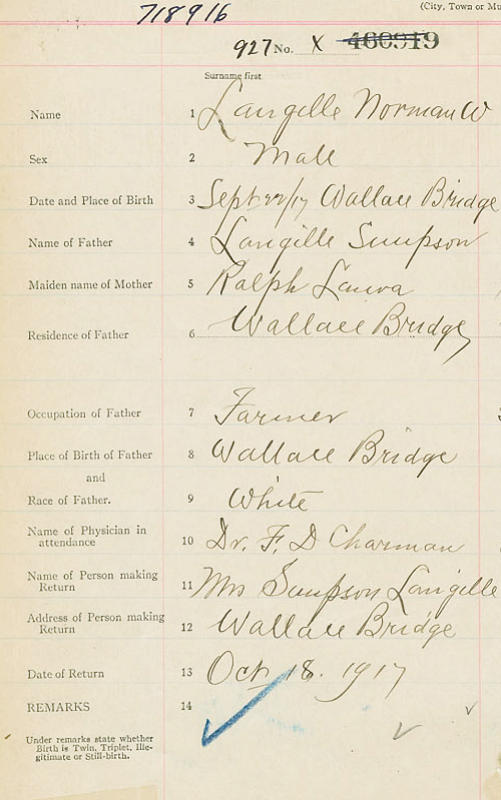 (City, Town or Mu
718916
927 No. X 460919
Surname first
Name 1 Langille Norman W
Sex 2 Male
Date and Place of Birth 3 Sept 22/17 Wallace Bridge
Name of Father 4 Langille Simpson
Maiden name of Mother 5 Ralph Laura
Residence of Father 6 Wallace Bridge
Occupation of Father 7 Farmer
Place of Birth of Father 8 Wallace Bridge
and
Race of Father. 9 White
Name of Physician in
attendance 10 Dr. F. D Charman
Name of Person making
Return 11 Mrs Simpson Langille
Address of Person making
Return 12 Wallace Bridge
Date of Return 13 Oct 18. 1917
REMARKS 14
Under remarks state whether
Birth is Twin, Triplet, Ille-
gitimate or Still-birth.